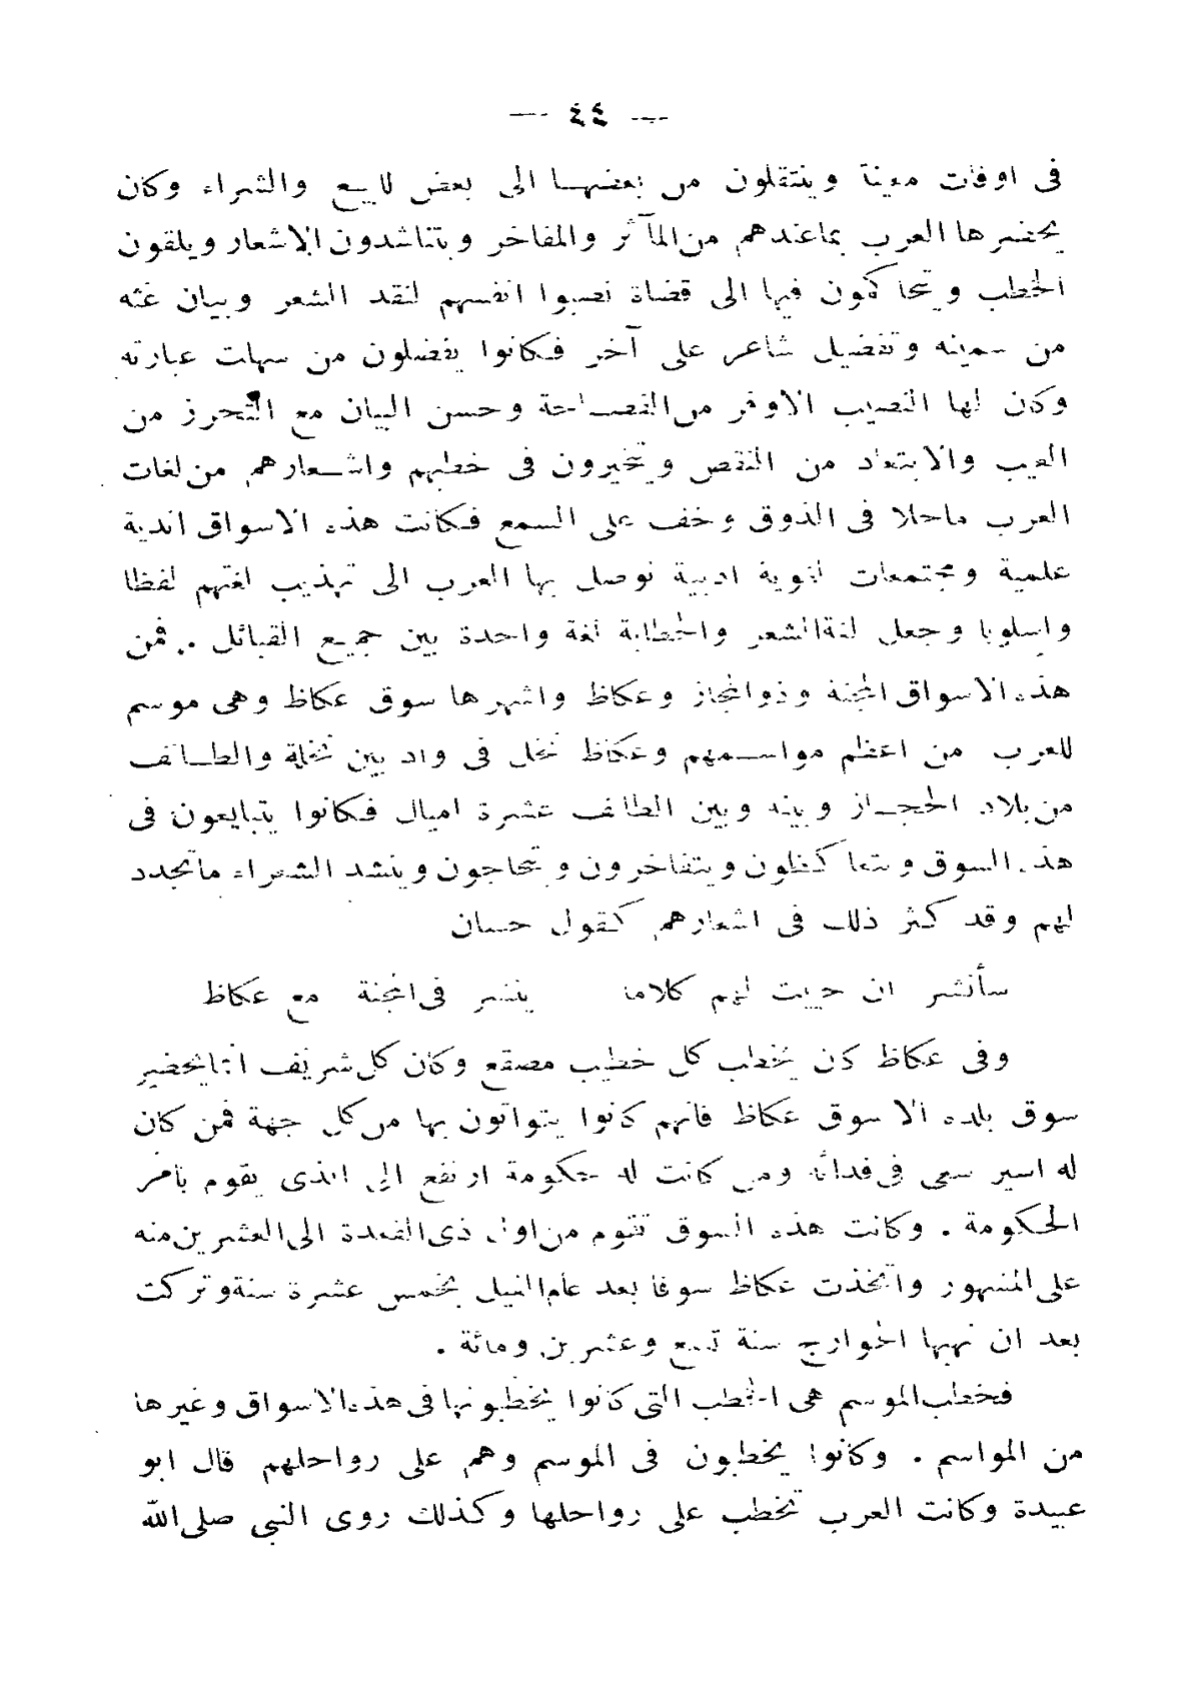 — ٤٤ —
فى اوقات معينة وينتقلون من بعضها الى بعض للبيع والشراء وكان
يحضرها العرب بماعندهم من المآثر والمفاخر ويتناشدون الاشعار ويلقون
الخطب ويتحاكمون فيها الى قضاة نصبوا انفسهم لنقد الشعر وبيان غثه
من سمينه وتفضيل شاعر على آخر فكانوا يفضلون من سهلت عبارته
وكان لها النصيب الاوفر من الفصاحة وحسن البيان مع التحرز من
العيب والابتعاد من النقص ويتخيرون فى خطبهم واشعارهم من لغات
العرب ماحلا فى الذوق وخف على السمع فكانت هذه الاسواق اندية
علمية ومجتمعات لغوية ادبية توصل بها العرب الى تهذيب لغتهم لفظا
واسلوبا وجعل لغة الشعر والخطابة لغة واحدة بين جميع القبائل . فمن
هذه الاسواق المجنة وذوالمجاز وعكاظ واشهرها سوق عكاظ وهى موسم
للعرب من اعظم مواسمهم وعكاظ نخل فى واد بين نخلة والطائف
من بلاد الحجاز وبينه وبين الطائف عشرة اميال فكانوا يتبايعون فى
هذه السوق ويتعاكظون ويتفاخرون ويتحاجون وينشد الشعراء ماتجدد
لهم وقد كثر ذلك فى اشعارهم كقول حسان
سأنشر ان حييت لهم كلاما ينشر فى المجنة مع عكاظ
وفى عكاظ كان يخطب كل خطيب مصقع وكان كل شريف انما يحضر
سوق بلده الا سوق عكاظ فانهم كانوا يتوافون بها من كل جهة فمن كان
له اسير سعى فى فدائه ومن كانت له حكومة ارتفع الى الذى يقوم بأمر
الحكومة . وكانت هذه السوق تقوم من اول ذى القعدة الى العشرين منه
على المشهور واتخذت عكاظ سوقا بعد عام الفيل بخمس عشرة سنة وتركت
بعد ان نهبها الخوارج سنة تسع وعشرين ومائة .
فخطب الموسم هى الخطب التى كانوا يخطبونها فى هذه الاسواق وغيرها
من المواسم . وكانوا يخطبون فى الموسم وهم على رواحلهم قال ابو
عبيدة وكانت العرب تخطب على رواحلها وكذلك روى النبى صلى الله